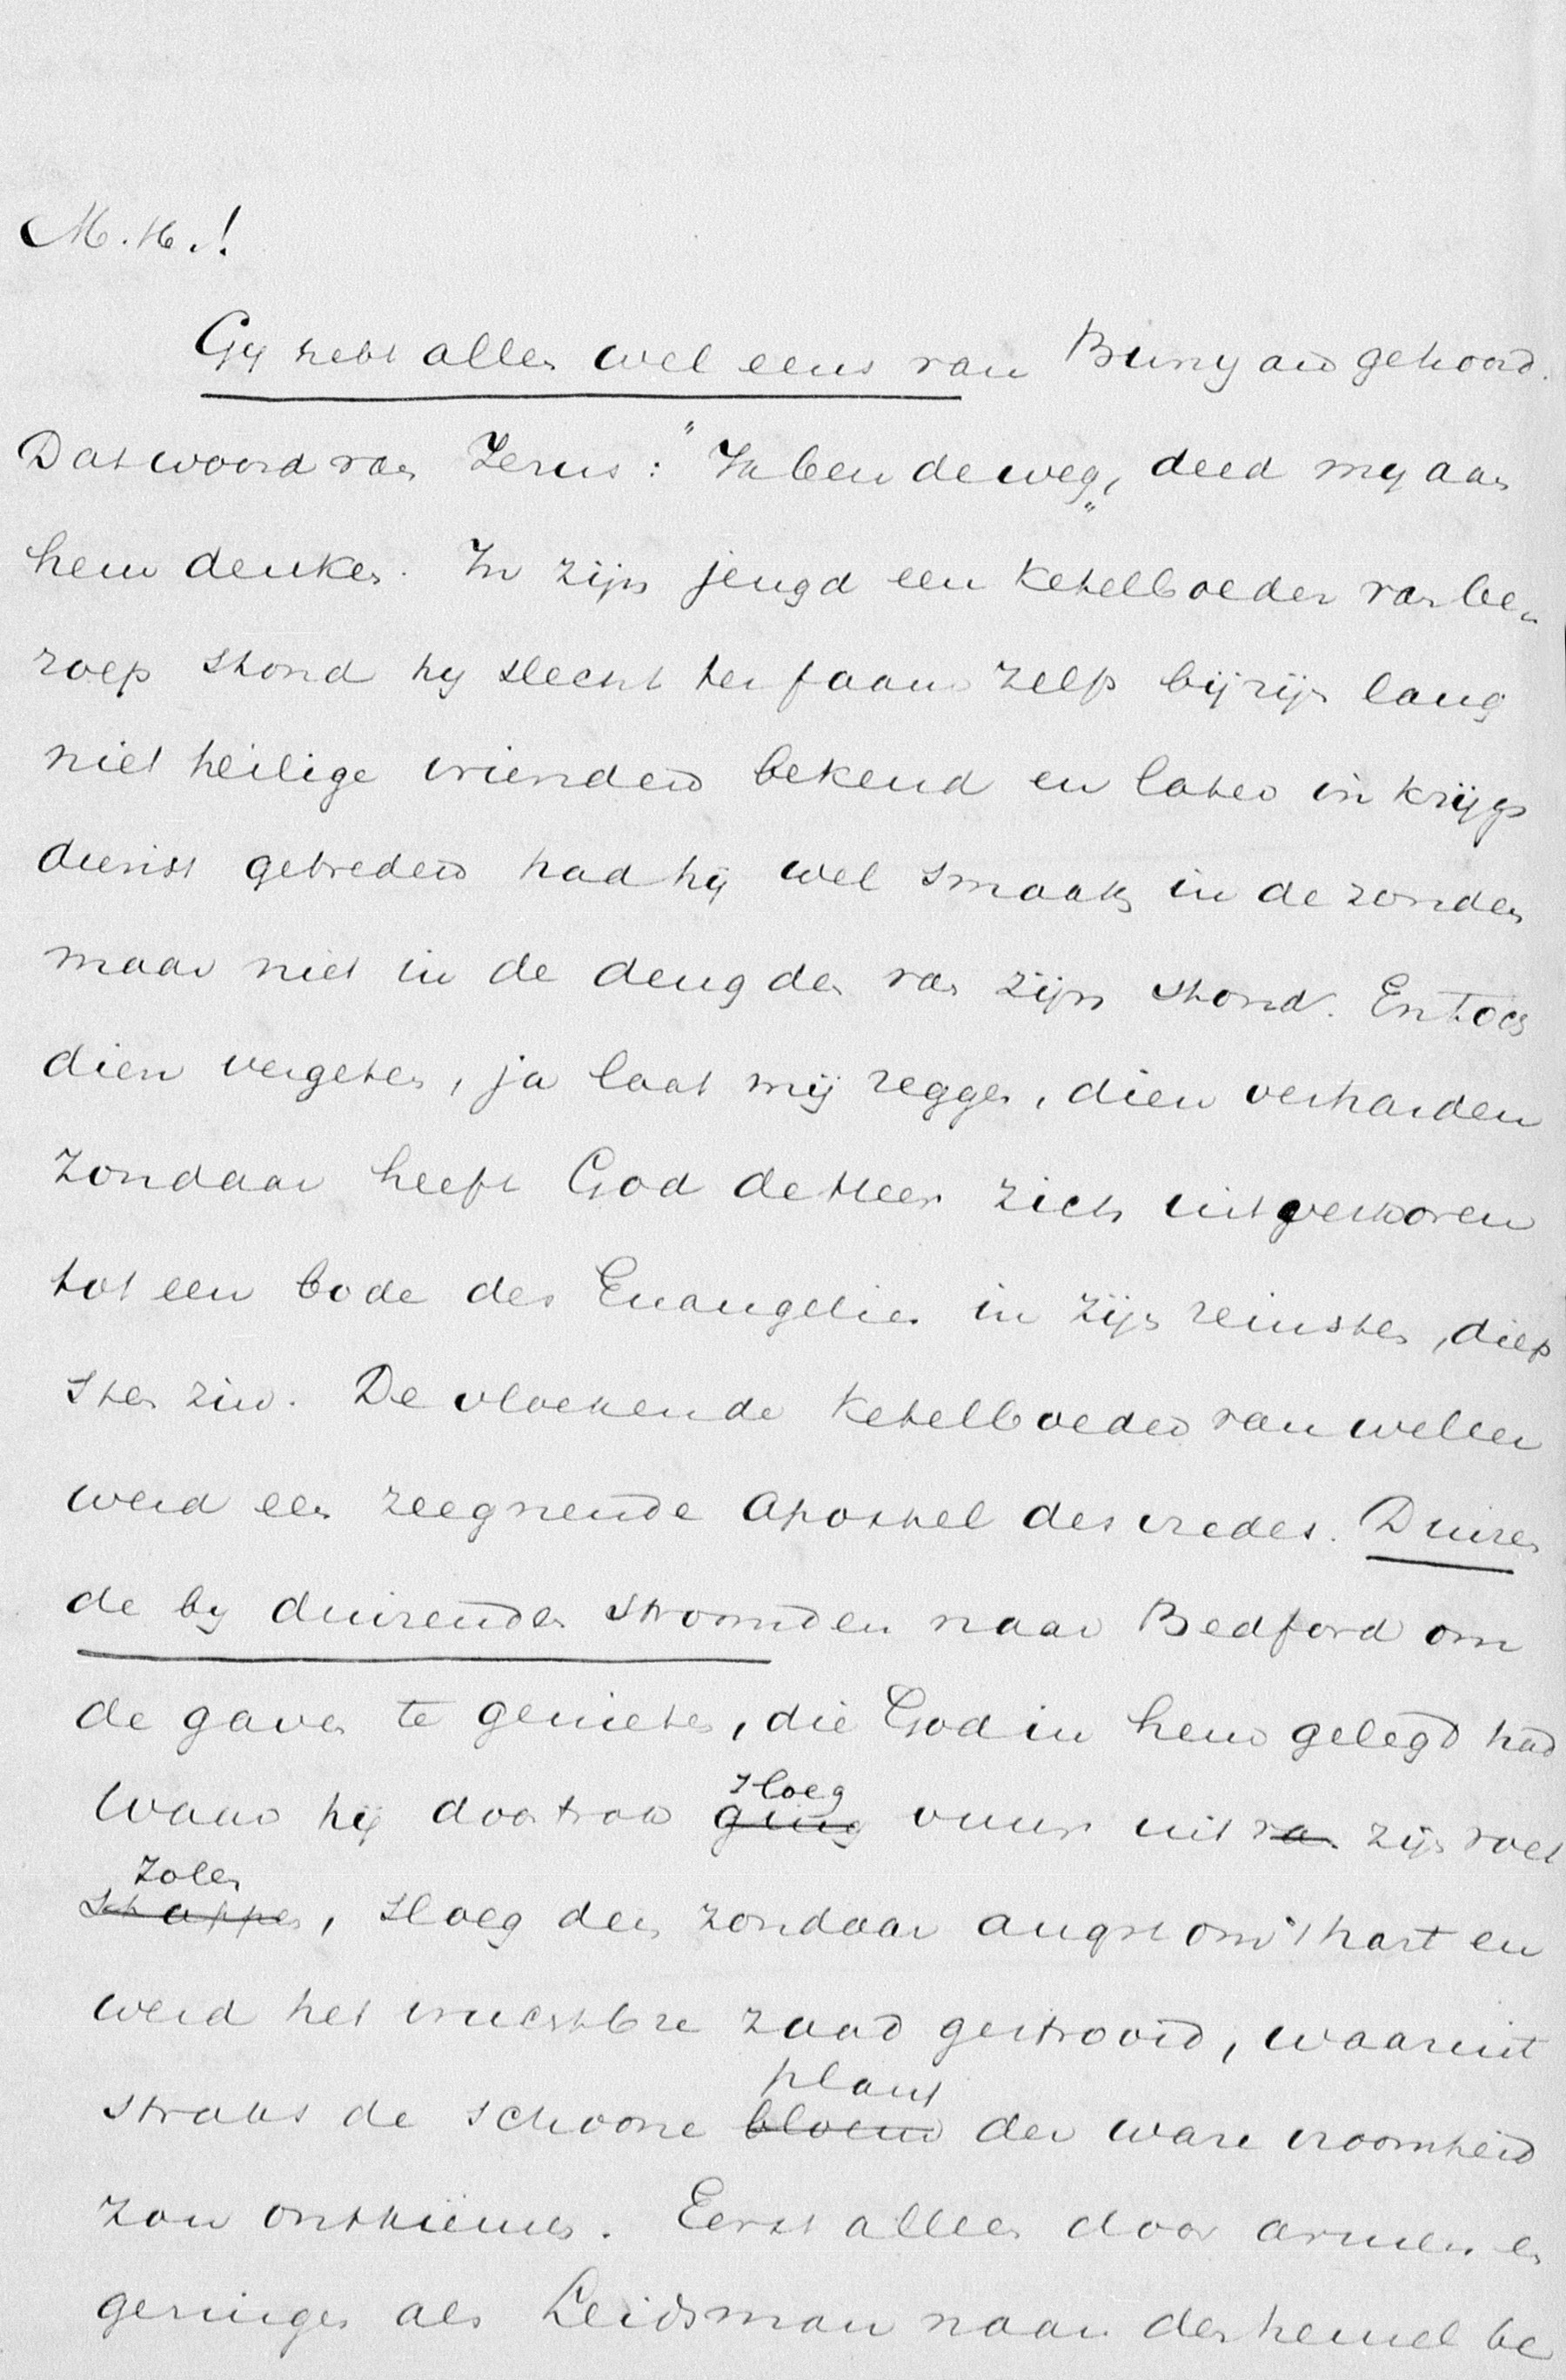 M. H.!
Gij hebt allen wel eens van Bunyan gehoord.
Dat woord van Jezus: "Ik ben de weg", deed mij aan
hem denken. In zijn jeugd een ketelboeter van be-
roep stond hij slecht ter faam zelfs bij zijn lang
niet heilige vrienden bekend en later in krijgs
dienst getreden had hij wel smaak in de zonden
maar niet in de deugden van zijn stand. En toch
dien vergeten, ja laat mij zeggen, dien verharden
zondaar heeft God de Heer zich uitverkoren
tot een bode des Evangelies in zijn reinsten, diep
sten zin. De vloekende ketelboeter van weleer
werd een zeegnende Apostel des vredes. Duizen
de bij duizenden stroomden naar Bedford om
de gaven te genieten, die God in hem gelegd had
Waar hij doortrok ging sloeg vuur uit van zijn voet
stappen zolen, sloeg den zondaar angst om 't hart en
werd het vruchtbre zaad gestrooid, waaruit
straks de schoone bloem plant der ware vroomheid
zou ontkiemen. Eerst alleen door armen en
geringen als Leidsman naar den hemel be